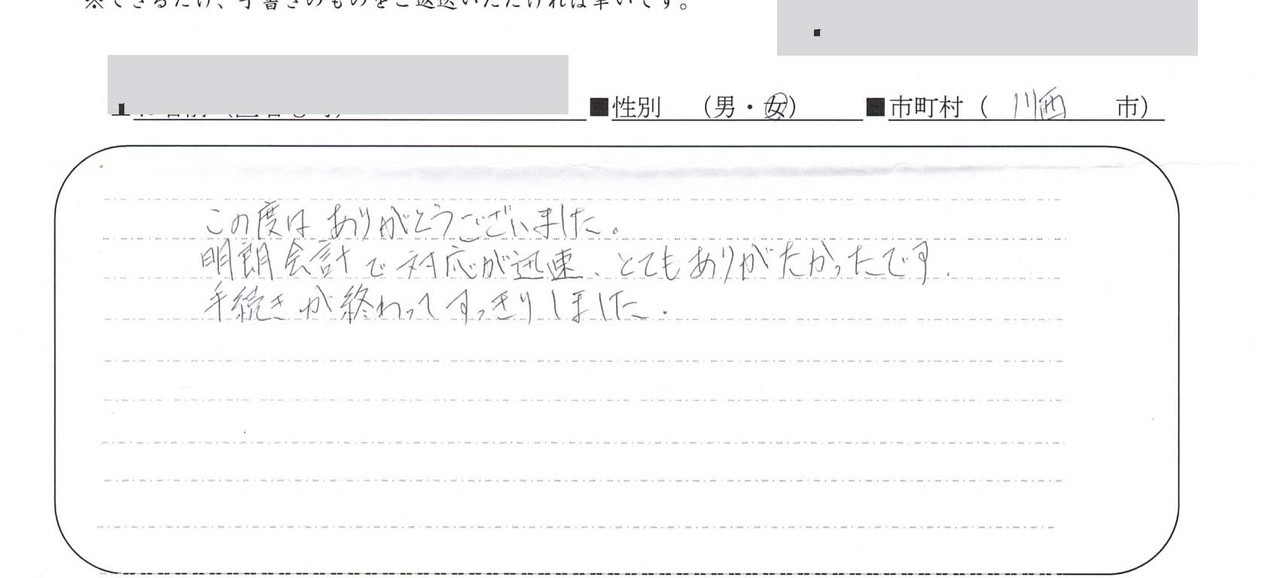 ※できるだけ、手書きのものをご返送いただければ幸いです。
■性別 (男・女) ■市町村 ( 川西 市)
この度は ありがとうございました。
明朗会計で対応が迅速、とてもありがたかったです.
手続きが終わってすっきりしました.